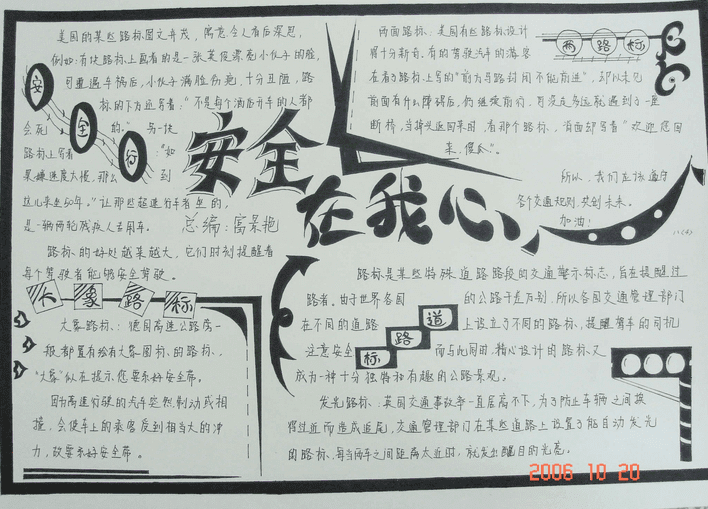 美国的某些路标图文并茂,寓意令人看后深思,
例如:有块路标上画着的是一张英俊漂亮小伙子的脸,
可遭遇车祸后,小伙子满脸伤疤,十分丑陋,路
标的下方还写着:"不是每个酒后开车的人都
会死的。"另一块
路标上写着:"如
果嫌速度太慢,那么到
这儿来坐50年。"让那些超速行手者坐的,
是一辆两轮残疾人专用车。
路标的好处越来越大,它们时刻提醒着
每个驾驶者能够安全驾驶。
安全行
安全
在我心
总编:高景艳
两面路标
两面路标:美国有些路标设计
得十分新奇,有的驾驶汽车的游客
在看了路标上写的"前方马路封闭不能前进",却从未见
前面有什么障碍后,仍继续前行,可没走多远就遇到了一座
断桥,当掉头返回来时,看那个路标,背面却写着"欢迎您回
来,傻瓜"。
所以,我们应该遵守
各个交通规则,共创未来。
加油!
大象路标
大象路标:德国高速公路旁一
般都置有绘有大象图标的路标,
"大象"似在提示您要系好安全带。
因为高速行驶的汽车忽然制动或相
撞,会使车上的乘客受到相当大的冲
力,故要系好安全带。
道路标
路标是某些特殊道路路段的交通警示标志,旨在提醒过
路者。由于世界各国的公路千差万别,所以各国交通管理部门
在不同的道路上设立了不同的路标,提醒驾车的司机
注意安全,而与此同时,精心设计的路标又
成为一种十分独特和有趣的公路景观。
发光路标:英国交通事故率一直居高不下,为了防止车辆之间挨
得过近而造成追尾,交通管理部门在某些道路上设置了能自动发光
的路标,每当两车之间距离太近时,就发出醒目的光亮。
2006 10 20